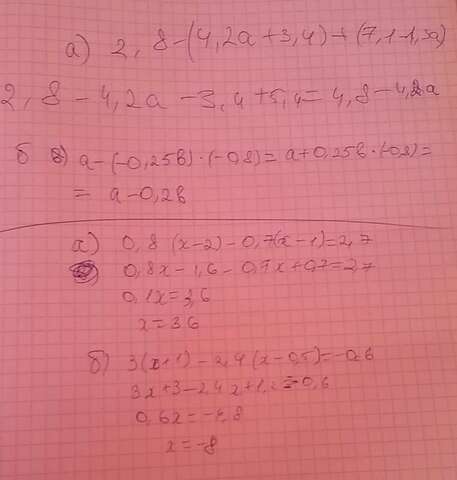 а) 2,8-(4,2a+3,4)+(7,1-1,3a)
2,8-4,2a-3,4+5,4=4,8-4,2a
б в) a-(-0,25b)·(-0,8)=a+0,25b·(-0,8)=
= a-0,2b
а) 0,8(x-2)-0,7(x-1)=2,7
0,8x-1,6-0,7x+0,7=2,7
0,1x=3,6
x=36
б) 3(x+1)-2,4(x-0,5)=-0,6
3x+3-2,4x+1,2=-0,6
0,6x=-4,8
x=-8